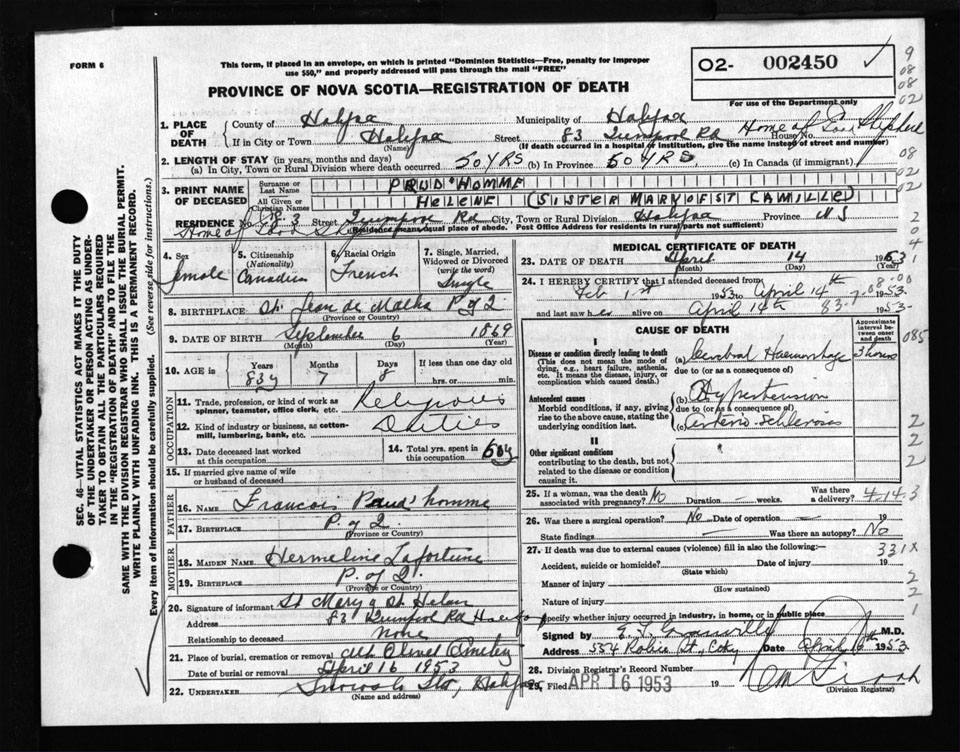 FORM 6
This form, if placed in an envelope, on which is printed "Dominion Statistics—Free, penalty for improper
use $50," and properly addressed will pass through the mail "FREE"
PROVINCE OF NOVA SCOTIA—REGISTRATION OF DEATH
O2- 002450
For use of the Department only
SEC. 46—VITAL STATISTICS ACT MAKES IT THE DUTY
OF THE UNDERTAKER OR PERSON ACTING AS UNDER-
TAKER TO OBTAIN ALL THE PARTICULARS REQUIRED
IN THE "REGISTRATION OF DEATH" AND TO FILE THE
SAME WITH THE DIVISION REGISTRAR WHO SHALL ISSUE THE BURIAL PERMIT.
WRITE PLAINLY WITH UNFADING INK. THIS IS A PERMANENT RECORD.
Every item of information should be carefully supplied. (See reverse side for instructions.)
1. PLACE OF DEATH
County of Halifax Municipality of Halifax
If in City or Town Halifax Street 83 Quinpool Rd House No. Home of Good Shepherd
(Name) (If death occurred in a hospital or institution, give the name instead of street and number)
2. LENGTH OF STAY (in years, months and days)
(a) In City, Town or Rural Division where death occurred 50 YRS (b) In Province 50 YRS. (c) In Canada (if immigrant)
3. PRINT NAME OF DECEASED
Surname or Last Name PRUD'HOMME
All Given or Christian Names HELENE (SISTER MARY OF ST CAMILLE)
RESIDENCE No. 83 Street Quinpool Rd City, Town or Rural Division Halifax Province N S
Home of Good Shepherd
Residence means usual place of abode. Post Office Address for residents in rural parts not sufficient)
4. Sex
Female
5. Citizenship
(Nationality)
Canadian
6. Racial Origin
French
7. Single, Married,
Widowed or Divorced
(write the word)
Single
8. BIRTHPLACE St. Jean de Matha P of Q
(Province or Country)
9. DATE OF BIRTH September 6 1869
(Month) (Day) (Year)
10. AGE in Years Months Days If less than one day old
83y 7 8 hrs. or min.
OCCUPATION
11. Trade, profession, or kind of work as
spinner, teamster, office clerk, etc. Religious
12. Kind of industry or business, as cotton-
mill, lumbering, bank, etc. Duties
13. Date deceased last worked
at this occupation
14. Total yrs. spent in
this occupation 60y
15. If married give name of wife
or husband of deceased
FATHER
16. NAME Francois Prud'homme
17. BIRTHPLACE P of Q
(Province or Country)
MOTHER
18. MAIDEN NAME Hermeline Lafortune
19. BIRTHPLACE P. of Q.
(Province or Country)
20. Signature of informant St Mary of St. Helen
Address 83 Quinpool Rd Halifax
Relationship to deceased None
21. Place of burial, cremation or removal Mt Olivet Cemetery
Date of burial or removal April 16 1953
22. UNDERTAKER Snows Ltd, Halifax
(Name and address)
MEDICAL CERTIFICATE OF DEATH
23. DATE OF DEATH April 14 1953
(Month) (Day) (Year)
24. I HEREBY CERTIFY that I attended deceased from
Feb 1st 1953 to April 14th 1953.
and last saw her alive on April 14th 1953
CAUSE OF DEATH
Approximate
interval be-
tween onset
and death
I
Disease or condition directly leading to death
(This does not mean the mode of
dying, e.g., heart failure, asthenia,
etc. It means the disease, injury, or
complication which caused death.)
(a) Cerebral Haemorrhage 3 hours
due to (or as a consequence of)
Antecedent causes
Morbid conditions, if any, giving
rise to the above cause, stating the
underlying condition last.
(b) Hypertension
due to (or as a consequence of)
(c) Arterio-Schlerosis
II
Other significant conditions
contributing to the death, but not
related to the disease or condition
causing it.
25. If a woman, was the death
associated with pregnancy? No Duration — weeks. Was there
a delivery? 4-14-3
26. Was there a surgical operation? No Date of operation — 19
State findings — Was there an autopsy? No
27. If death was due to external causes (violence) fill in also the following:—
331X
Accident, suicide or homicide? Date of injury 19
(State which)
Manner of injury
(How sustained)
Nature of injury
Specify whether injury occurred in industry, in home, or in public place
Signed by M.D.
Address 554 Robie St, City Date April 16th 1953.
28. Division Registrar's Record Number
29. Filed APR 16 1953 19
(Division Registrar)